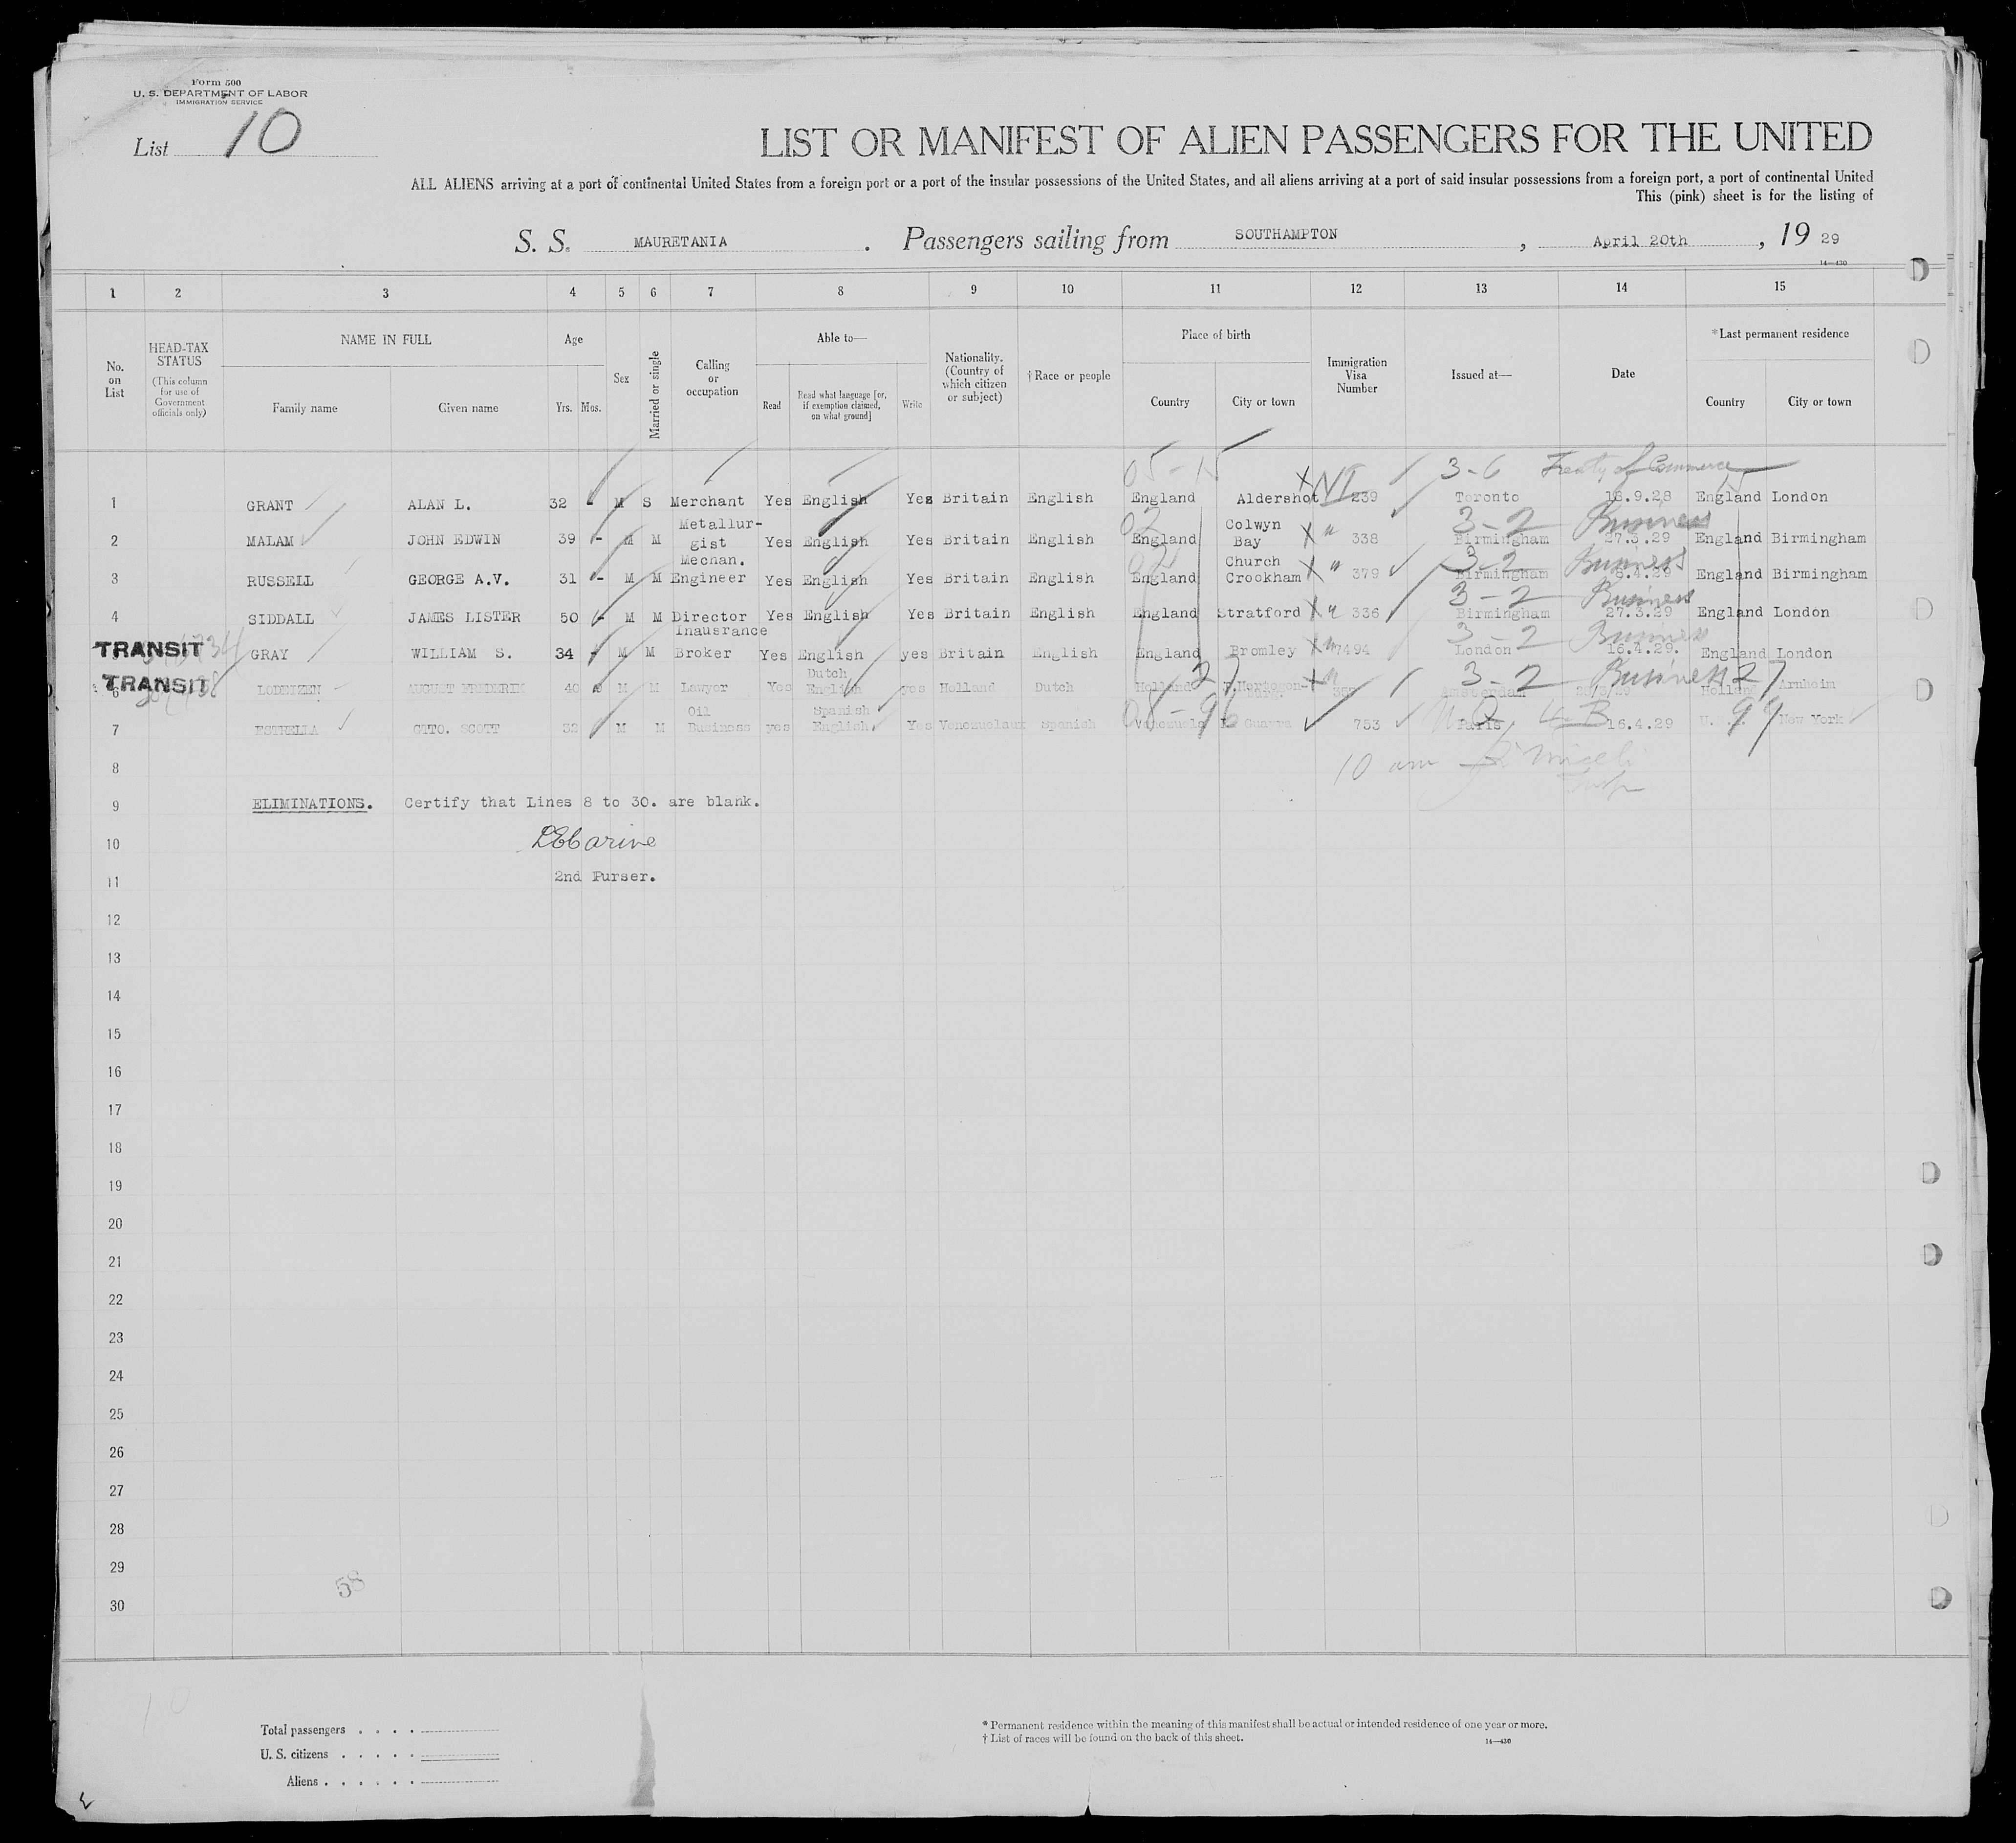 Form 500
U. S. DEPARTMENT OF LABOR
IMMIGRATION SERVICE
List 10
LIST OR MANIFEST OF ALIEN PASSENGERS FOR THE UNITED
ALL ALIENS arriving at a port of continental United States from a foreign port or a port of the insular possessions of the United States, and all aliens arriving at a port of said insular possessions from a foreign port, a port of continental United
This (pink) sheet is for the listing of
S. S. MAURETANIA . Passengers sailing from SOUTHAMPTON , April 20th , 19 29
14—430
1 2 3 4 5 6 7 8 9 10 11 12 13 14 15
No. on List
HEAD-TAX STATUS
(This column for use of Government officials only)
NAME IN FULL
Family name
Given name
Age
Yrs. Mos.
Sex
Married or single
Calling or occupation
Able to—
Read
Read what language [or, if exemption claimed, on what ground]
Write
Nationality. (Country of which citizen or subject)
† Race or people
Place of birth
Country
City or town
Immigration Visa Number
Issued at—
Date
*Last permanent residence
Country
City or town
05-15 3-6 Treaty of Commerce
1 GRANT ALAN L. 32 - M S Merchant Yes English Yes Britain English England Aldershot X NI 239 Toronto 18.9.28 England London
02 3-2 Business
2 MALAM JOHN EDWIN 39 - M M Metallurgist Yes English Yes Britain English England Colwyn Bay X " 338 Birmingham 27.3.29 England Birmingham
3-2 Business
3 RUSSELL GEORGE A.V. 31 - M M Mechan. Engineer Yes English Yes Britain English England Church Crookham X " 379 Birmingham England Birmingham
3-2 Business
4 SIDDALL JAMES LISTER 50 - M M Director Yes English Yes Britain English England Stratford X " 336 Birmingham 27.3.29 England London
3-2 Business
TRANSIT GRAY WILLIAM S. 34 - M M Inausrance Broker Yes English yes Britain English England Bromley X " 7494 London 16.4.29. England London
27 3-2 Business 27
TRANSIT 6 LODEIZEN AUGUST FREDERIK 40 M M Lawyer Yes Dutch English yes Holland Dutch Holland X " Amsterdam Holland Arnheim
99
7 ESTRELLA OTTO. SCOTT 32 M M Oil Business yes Spanish English. Yes Venezuelaun Spanish Venezuela Guarva 753 Paris 16.4.29 New York
8 10 am
9 ELIMINATIONS. Certify that Lines 8 to 30. are blank.
10
11 2nd Purser.
12
13
14
15
16
17
18
19
20
21
22
23
24
25
26
27
28
29
58
30
10
Total passengers . . . .
U. S. citizens . . . . .
Aliens . . . . . .
* Permanent residence within the meaning of this manifest shall be actual or intended residence of one year or more.
† List of races will be found on the back of this sheet.
14—430